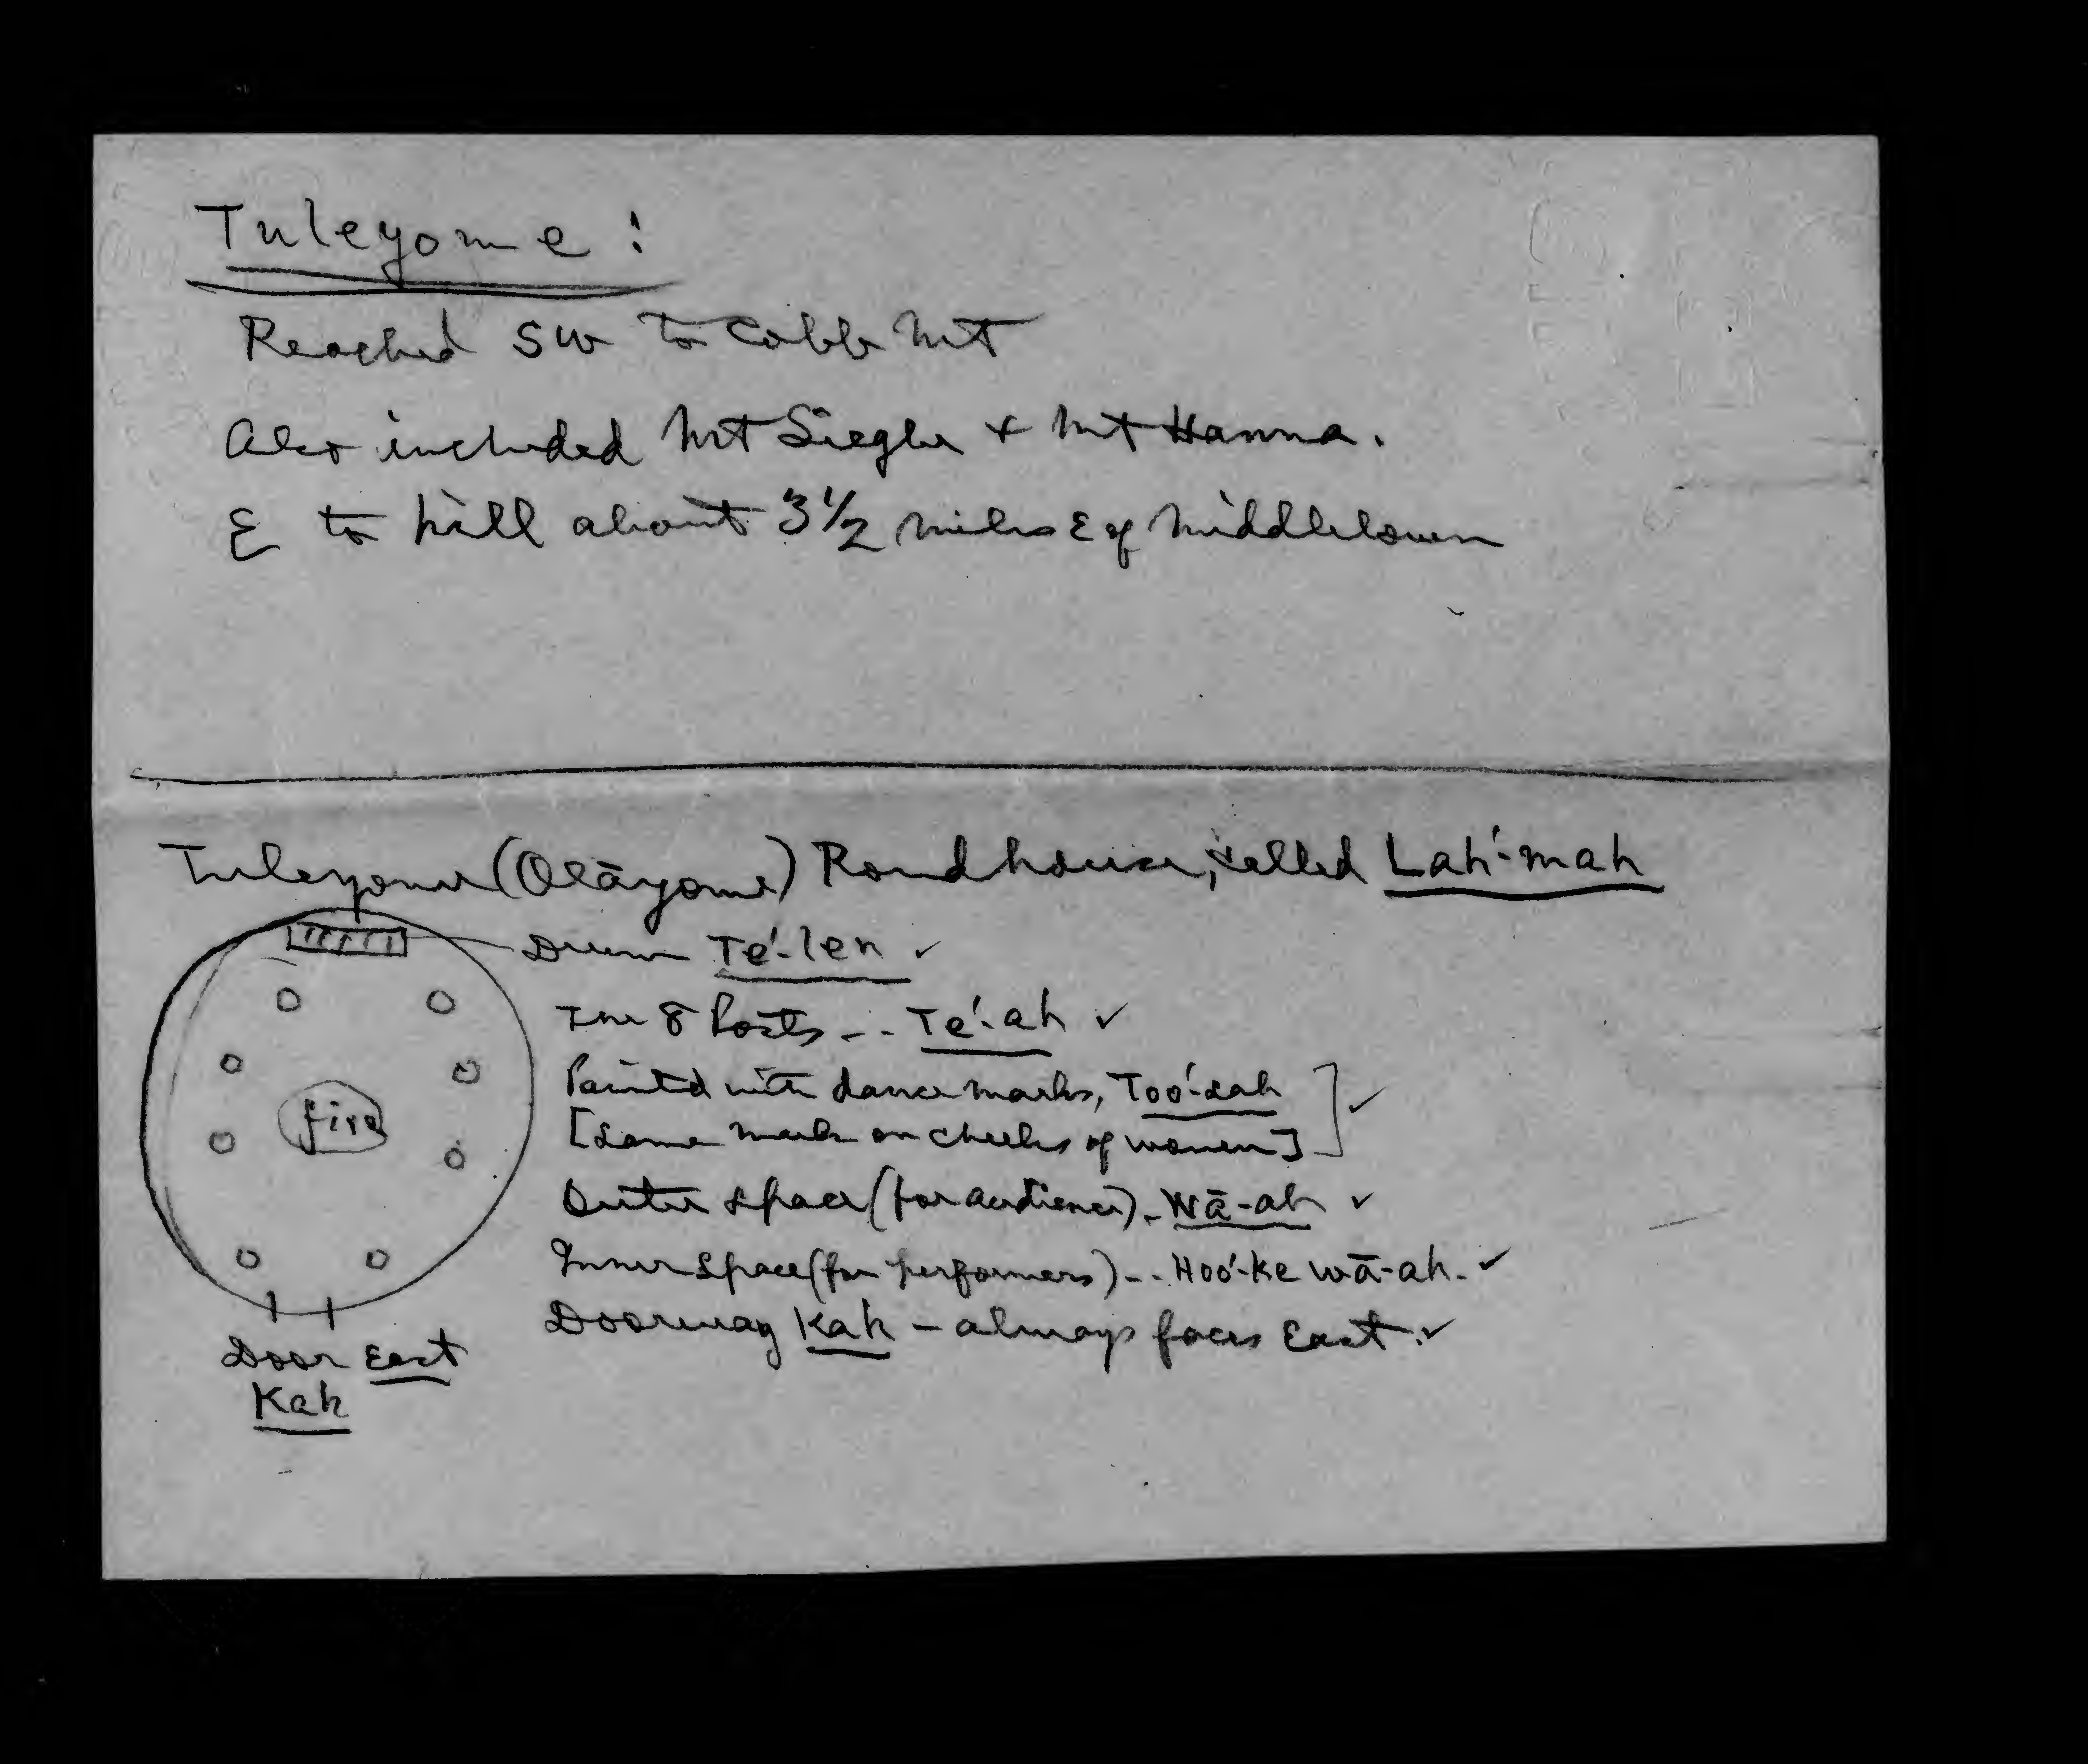 Tuleyome:
Reached SW to Cobb Mt
Also included Mt Siegler & Mt Hanna.
E to hill about 3 1/2 miles E of Middletown
Tuleyome (Olāyome) Roundhouse, called Lah́-mah
Drum Té-len ✓
The 8 Posts -.. Té-ah ✓
Painted with dance marks, Toó-sah
[Same mark on cheeks of women] ] ✓
Outer space (for audience) - Wā-ah ✓
Inner space (for performers) -.. Hoó-ke wā-ah. ✓
Doorway Kah - always faces East. ✓
fire
Door East
Kah